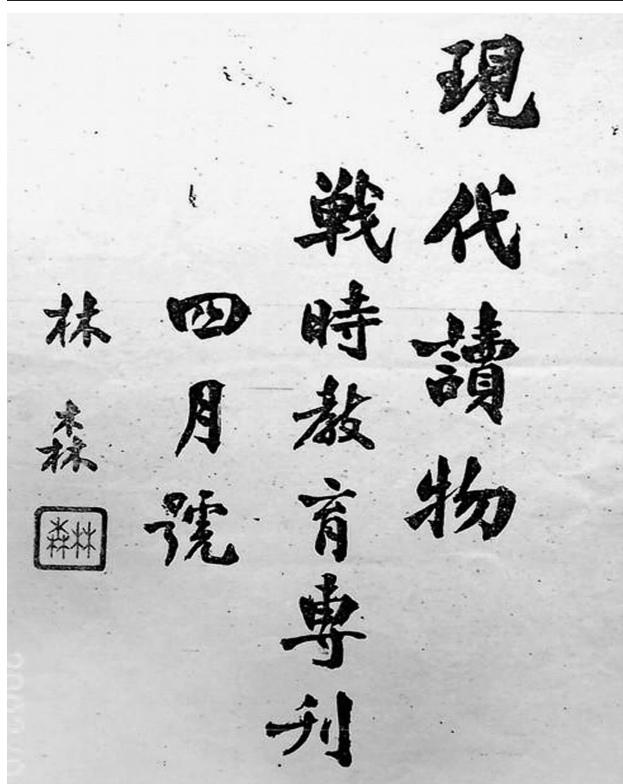 現代讀物
戰時教育專刊
四月號
林森
林森